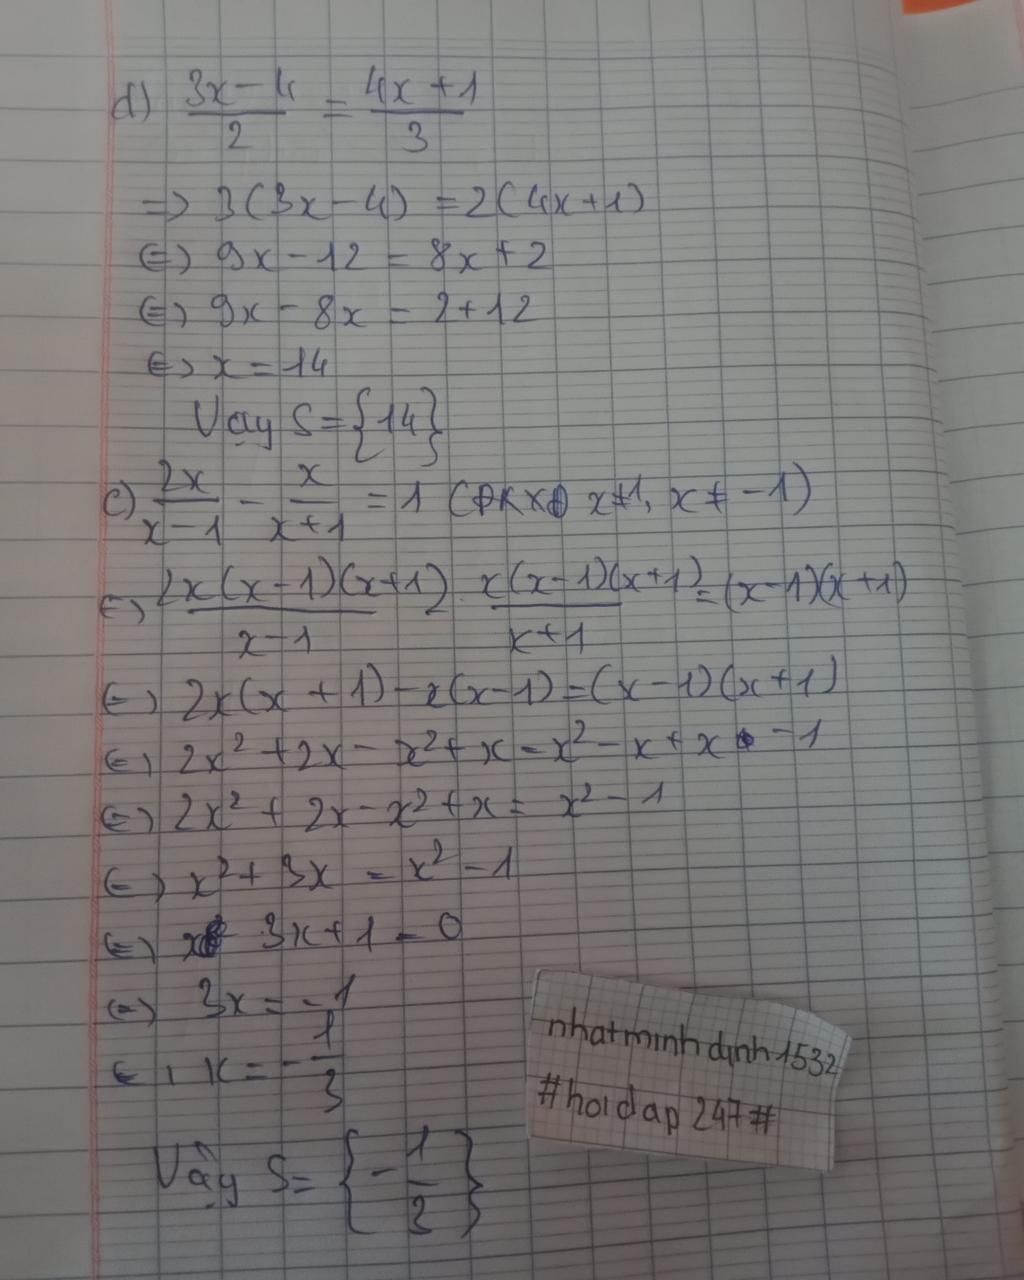 d) (3x - 4)/2 = (4x + 1)/3
=> 3(3x - 4) = 2(4x + 1)
<=> 9x - 12 = 8x + 2
<=> 9x - 8x = 2 + 12
<=> x = 14
Vậy S = {14}
c) 2x/(x - 1) - x/(x + 1) = 1 (ĐKXĐ x ≠ 1, x ≠ -1)
<=> 2x(x - 1)(x + 1)/(x - 1) - x(x - 1)(x + 1)/(x + 1) = (x - 1)(x + 1)
<=> 2x(x + 1) - x(x - 1) = (x - 1)(x + 1)
<=> 2x² + 2x - x² + x = x² - x + x - 1
<=> 2x² + 2x - x² + x = x² - 1
<=> x² + 3x = x² - 1
<=> 3x + 1 = 0
<=> 3x = -1
<=> x = -1/3
Vậy S = {-1/3}
nhatminhdinh1532
#hoidap247#